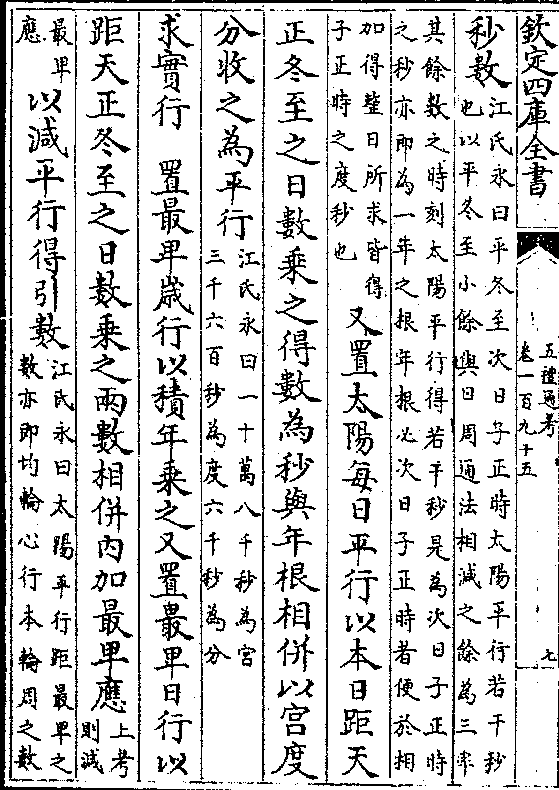 欽定四庫全書
五禮通考
卷一百九十五
七
秒數
江氏永曰平冬至次日子正時太陽平行若干秒
也以平冬至小餘與日周通法相減之餘為三率
其餘數之時刻太陽平行得若干秒是為次日子正時
之秒亦即為一年之根年根必次日子正時者便於相
加得整日所求皆得
子正時之度秒也
又置太陽每日平行以本日距天
正冬至之日數乘之得數為秒與年根相併以宮度
分收之為平行
江氏永曰一十萬八千秒為宮
三千六百秒為度六千秒為分
求實行　置最卑歲行以積年乘之又置最卑日行以
距天正冬至之日數乘之兩數相併內加最卑應
上考
則減
最卑
應
以減平行得引數
江氏永曰太陽平行距最卑之
數亦即均輪心行本輪周之數